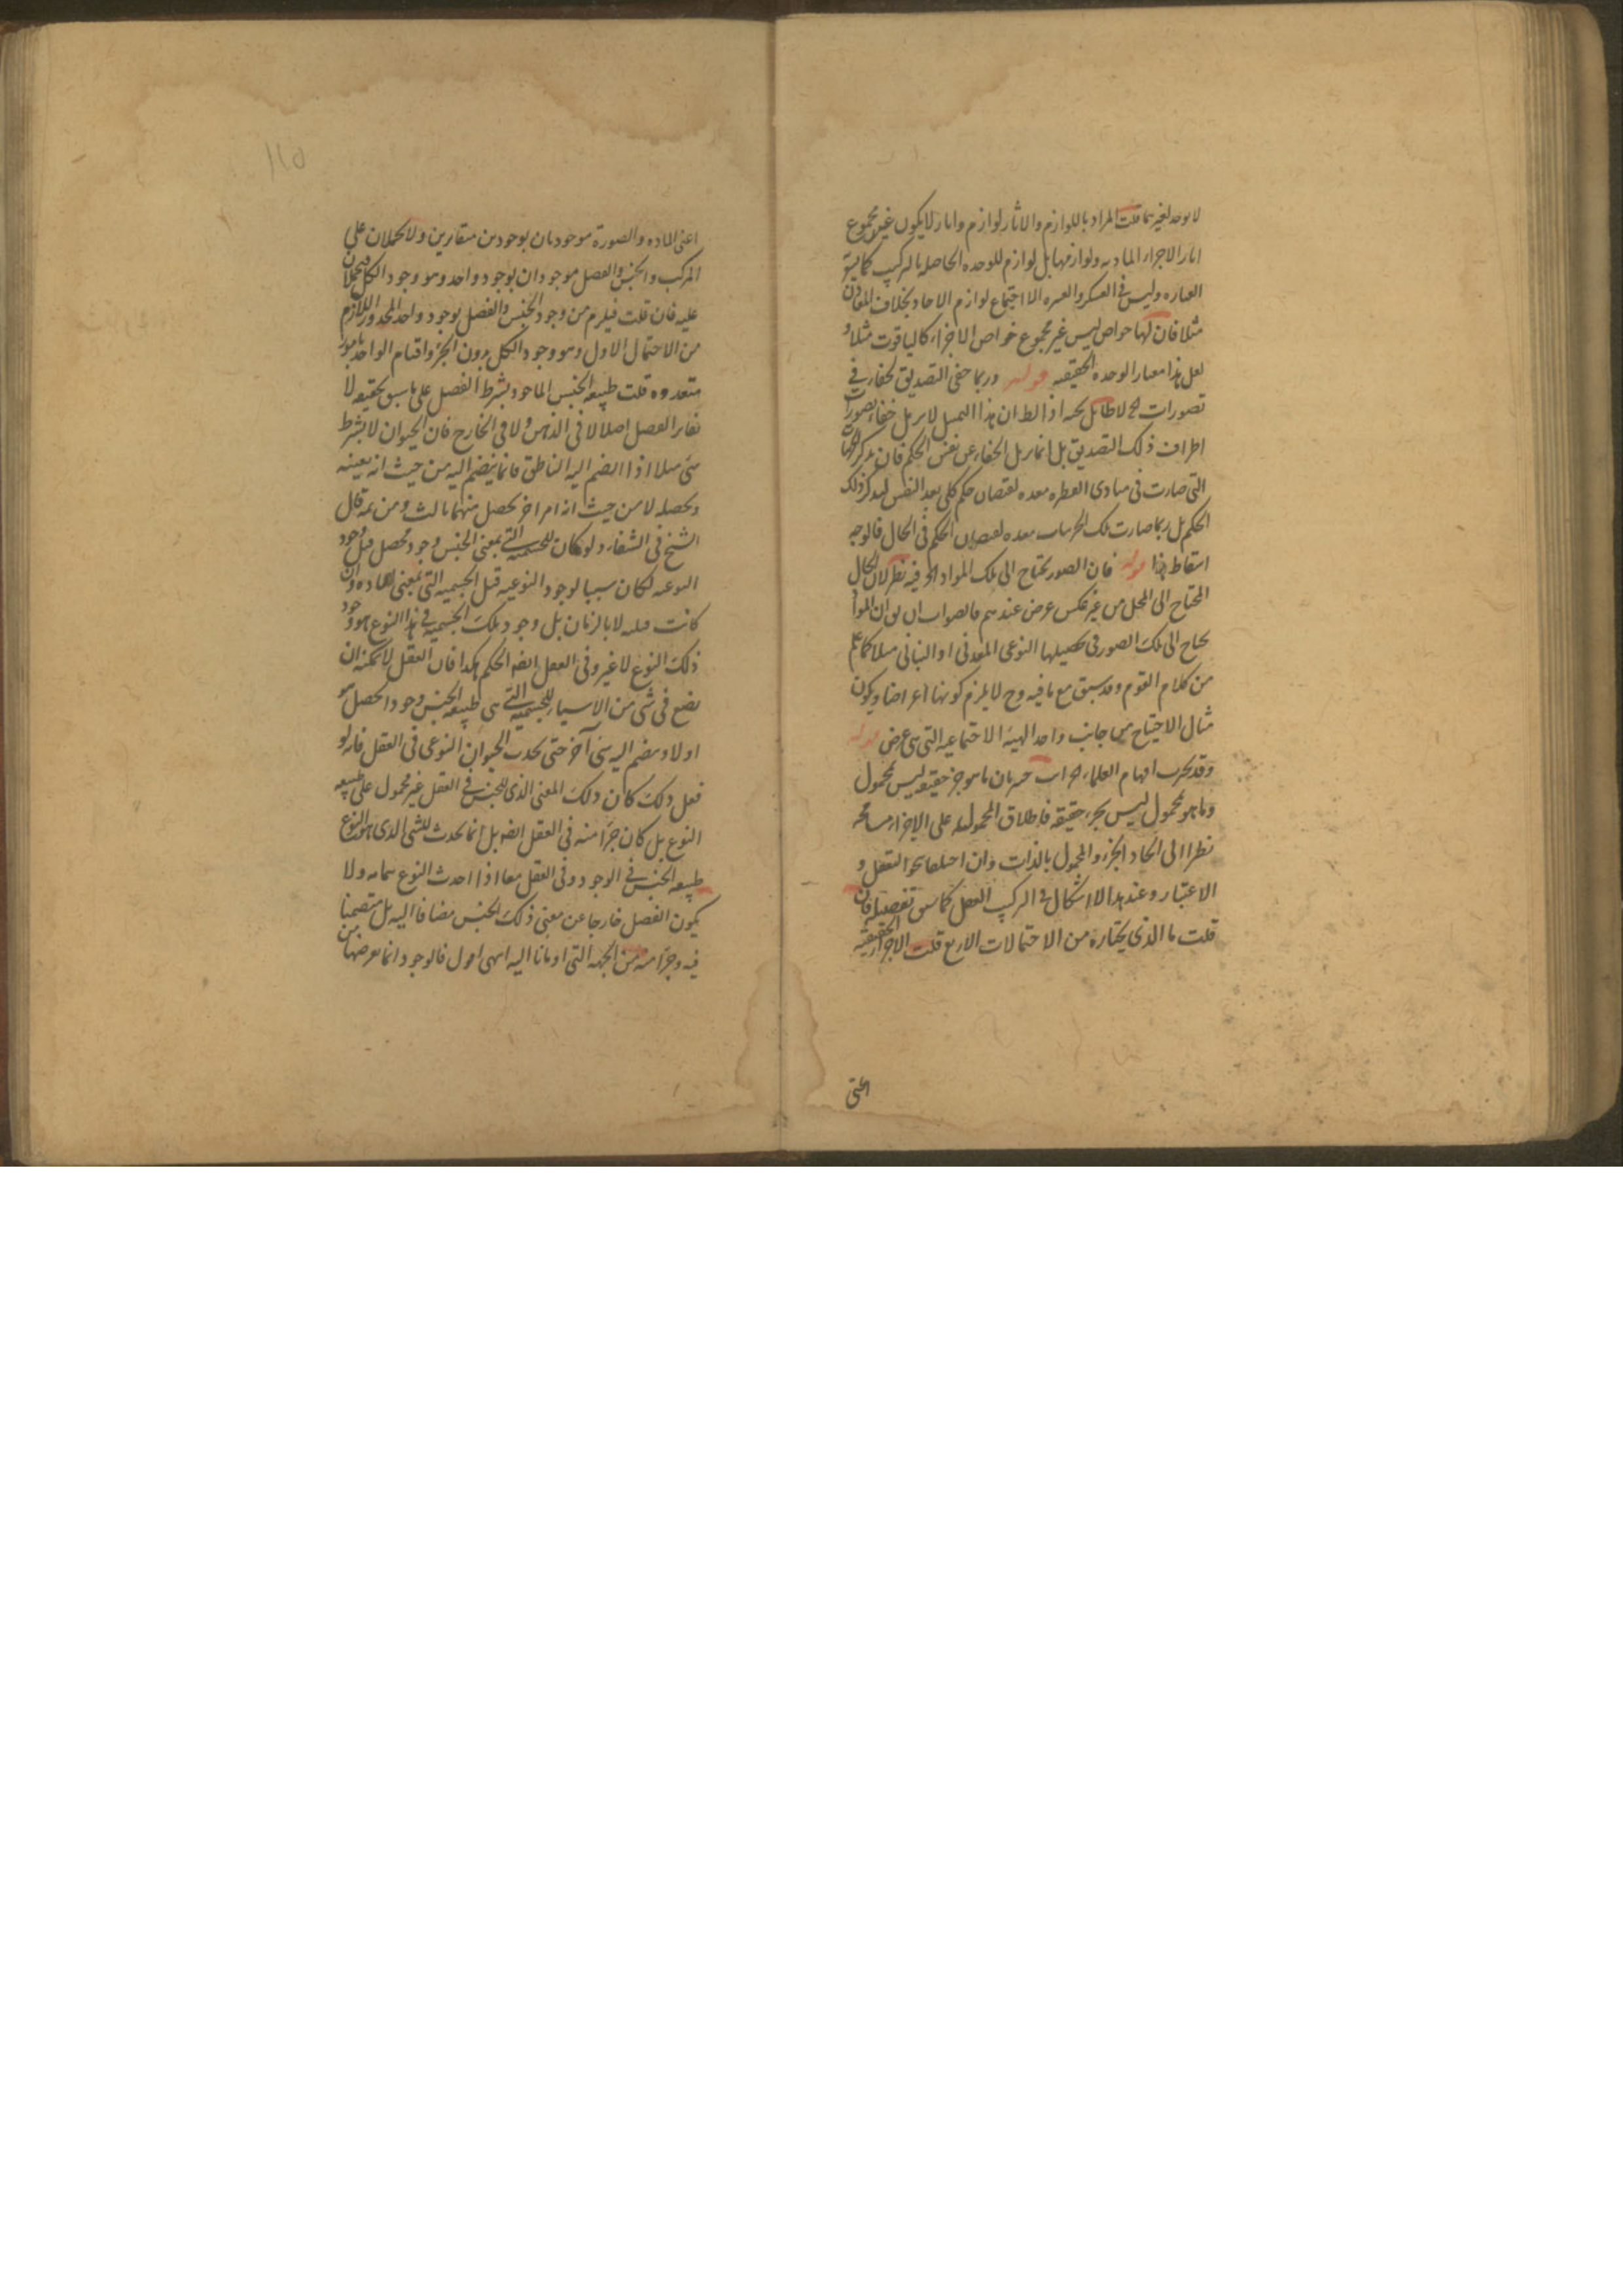 لا يوجد لغيرها قلت المراد باللوازم والاثار لوازم واثار لا يكون غير مجموع
اثار الاجزاء الماديه ولوازمها بل لوازم للوحده الحاصله بالتركيب كما
العباره وليس فى العسكر والعشره الا اجتماع لوازم الاحاد بخلاف المعادن
مثلا فان لها خواص ليس غير مجموع خواص الاجزاء كالياقوت مثلا و
لعل هذا معيار الوحده الحقيقيه قوله وربما خفى التصديق لخفاء فى
تصورات ح لا طائل تحته اذ الظ ان هذا لا يزيل خفاء تصورات
اطراف ذلك التصديق بل انما يزيل الخفاء عن نفس الحكم فان
التى صارت فى مبادى الفطره معده لفيضان حكم كلى بعد النفس ذلك
الحكم بل ربما صارت تلك الجزئيات معده لفيضان الحكم فى الحال فالوجه
اسقاط هذا قوله فان الصور تحتاج الى تلك المواد الخ فيه نظر لان الحال
المحتاج الى المحل من غير عكس عرض عندهم فالصواب ان المواد
تحتاج الى تلك الصور فى تحصيلها النوعى المعدنى او النباتى مثلا كما علم
من كلام القوم وقد سبق مع ما فيه وح لا يلزم كونها اعراضا ويكون
مثال الاحتياج من جانب واحد الهيئه الاجتماعيه التى هى عرض قوله
وقد تحيرت افهام العلماء اجاب بان ما هو جزء حقيقه ليس بمحمول
وما هو محمول ليس بجزء حقيقه فاطلاق المحموله على الاجزاء مسامحه
نظرا الى اتحاد الجزء والمحمول بالذات وان اختلفا بنحو التعقل و
الاعتبار وعند هذا لا اشكال فى التركيب العقلى كما سبق تفصيله فان
قلت ما الذى يختاره من الاحتمالات الاربع قلت الاجزاء الحقيقيه
اعنى
١١٥
اعنى الماده والصورة موجودان بوجودين متغايرين ولا يحملان على
المركب والجنس والفصل موجودان بوجود واحد وهو وجود الكل فيحملان
عليه فان قلت فيلزم من وجود الجنس والفصل بوجود واحد المحذور اللازم
من الاحتمال الاول وهو وجود الكل بدون الجزء واقسام الواحد بامور
متعدده قلت طبيعه الجنس الماخوذ بشرط الفصل على ما سبق تحقيقه لا
تغاير الفصل اصلا لا فى الذهن ولا فى الخارج فان الحيوان لا بشرط
شئ مثلا اذا انضم اليه الناطق فانما ينضم اليه من حيث انه يعينه
ويحصله لا من حيث انه امر اخر يحصل منهما ثالث ومن ثمه قال
الشيخ فى الشفاء ولو كان للجسميه التى بمعنى الجنس وجود محصل قبل وجود
النوعيه لكان سببا لوجود النوعيه قبل الجسميه التى بمعنى الماده وان
كانت قبله لا بالزمان بل وجود تلك الجسميه فى هذا النوع هو وجود
ذلك النوع لا غير وفى العقل ايضا الحكم هكذا فان العقل لا يمكنه ان
يضع فى شى من الاشياء للجسميه التى هى طبيعه الجنس وجودا يحصل هو
اولا وينضم اليه شئ آخر حتى يحدث الحيوان النوعى فى العقل فانه لو
فعل ذلك كان ذلك المعنى الذى للجنس فى العقل غير محمول على طبيعه
النوع بل كان جزءا منه فى العقل ايضا بل انما يحدث للشئ الذى هو النوع
طبيعه الجنس فى الوجود وفى العقل معا اذا احدث النوع بتمامه ولا
يكون الفصل خارجا عن معنى ذلك الجنس مضافا اليه بل متضمنا
فيه وجزءا منه من الجهه التى اومانا اليه انتهى اقول فالوجود انما عرضها من